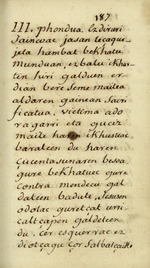 187
III. phondua. Ezdirudi
Jaincoac jasan tecaque
jela hambat bekhatu
munduan, ezbalu ikhus
ten Juri galduen er
dian bere Seme maitea
aldaren gainean Sacri
ficatua, victima ado
ragarri eta guciz
maite hark ikhustean
baratcen du haren
Cucentasunaren bessoa
gure bekhatuec gure
contra mendecu gal
datcen badute, Jesusen
odolac guretçat urri
calt apen galdetcen
du. Cer esquerrac ez
diotçagu çor Salbatçaille